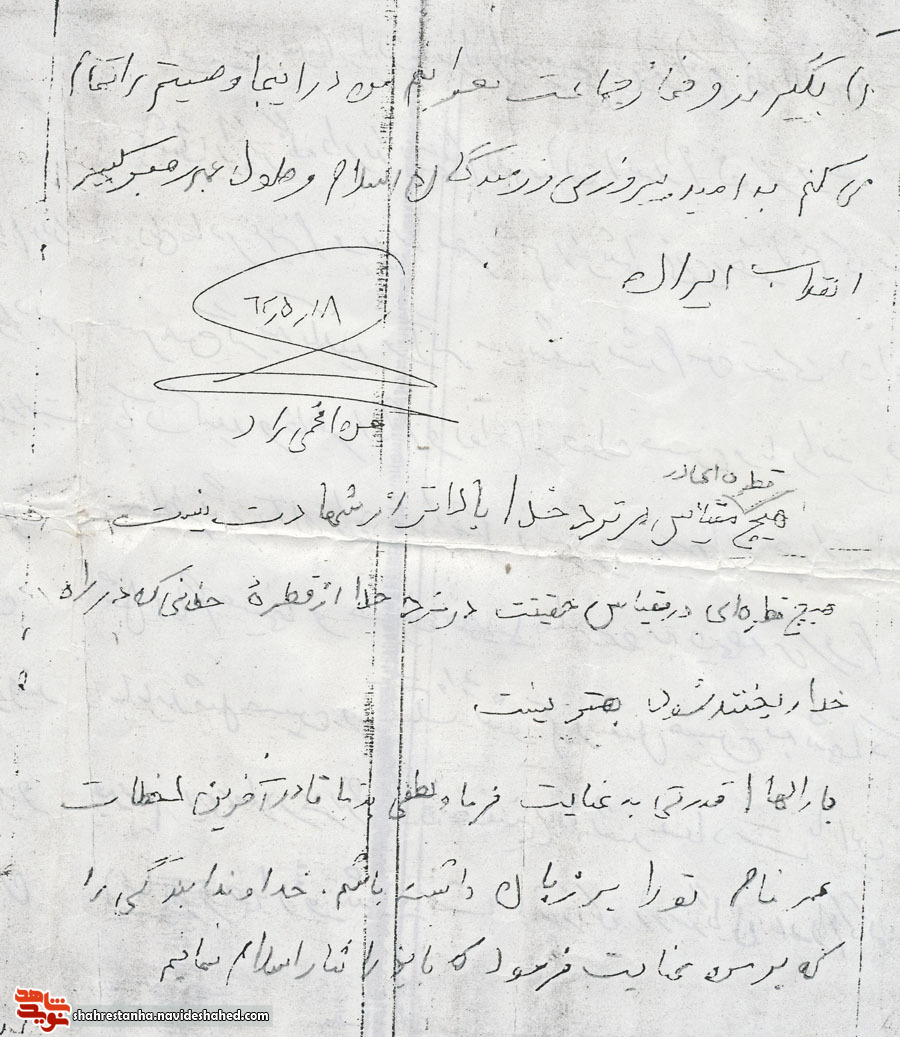 را بگیرند و نماز جماعت بخوانیم من در اینجا وصیتم را تمام
می کنم به امید پیروزی رزمندگان اسلام و طول عمر رهبر کبیر
انقلاب ایران
۶۲٫۵٫۱۸
قطره ای در
هیچ مقیاس در نزد خدا بالاتر از شهادت نیست
هیچ قطره ای در مقیاس حقیقت در نزد خدا از قطرهٔ خونی که در راه
خدا ریخته شود بهتر نیست.
بارالها قدرتی به عنایت فرما و لطفی بنما تا در آخرین لحظات
عمر نام تو را بر زبان داشته باشم. خداوندا زندگی را
که بر من عنایت فرمود که باید را نثار اسلام نمایم
نوید شاهد
shahrestanha.navideshahed.com